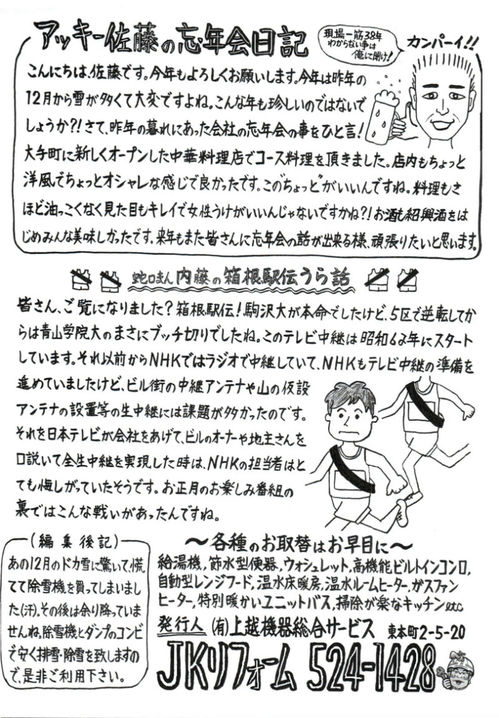 アッキー佐藤の忘年会日記
現場一筋38年
わからない事は
俺に聞け!
カンパーイ!!
こんにちは、佐藤です。今年もよろしくお願いします。今年は昨年の
12月から雪が多くて大変ですよね。こんな年も珍しいのではないで
しょうか?!さて、昨年の暮れにあった会社の忘年会の事をひと言!
大手町に新しくオープンした中華料理店でコース料理を頂きました。店内もちょっと
洋風でちょっとオシャレな感じで良かったです。この"ちょっと"がいいんですね。料理もさ
ほど油っこくなく見た目もキレイで女性うけがいいんじゃないですかね?!お酒も紹興酒をは
じめみんな美味しかったです。来年もまた皆さんに忘年会の話が出来る様、頑張りたいと思います。
蛇口まん 内藤の箱根駅伝うら話
皆さん、ご覧になりました?箱根駅伝!駒沢大が本命でしたけど、5区で逆転してか
らは青山学院大のまさにブッチ切りでしたね。このテレビ中継は昭和62年にスタート
しています。それ以前からNHKではラジオで中継していて、NHKもテレビ中継の準備を
進めていましたけど、ビル街の中継アンテナや山の仮設
アンテナの設置等の生中継には課題が多かったのです。
それを日本テレビが会社をあげて、ビルのオーナーや地主さんを
口説いて全生中継を実現した時は、NHKの担当者はと
ても悔しがっていたそうです。お正月のお楽しみ番組の
裏ではこんな戦いがあったんですね。
(編集後記)
あの12月のドカ雪に驚いて、慌
てて除雪機を買ってしまいまし
た(汗)。その後は余り降っていま
せんね。除雪機とダンプのコンビ
で安く排雪・除雪を致しますの
で、是非ご利用下さい。
〜各種のお取替はお早目に〜
給湯機,節水型便器,ウォシュレット,高機能ビルトインコンロ,
自動型レンジフード,温水床暖房,温水ルームヒーター,ガスファン
ヒーター,特別暖かいユニットバス,掃除が楽なキッチンetc
発行人 (有)上越機器総合サービス 東本町2-5-20
JKリフォーム 524-1428